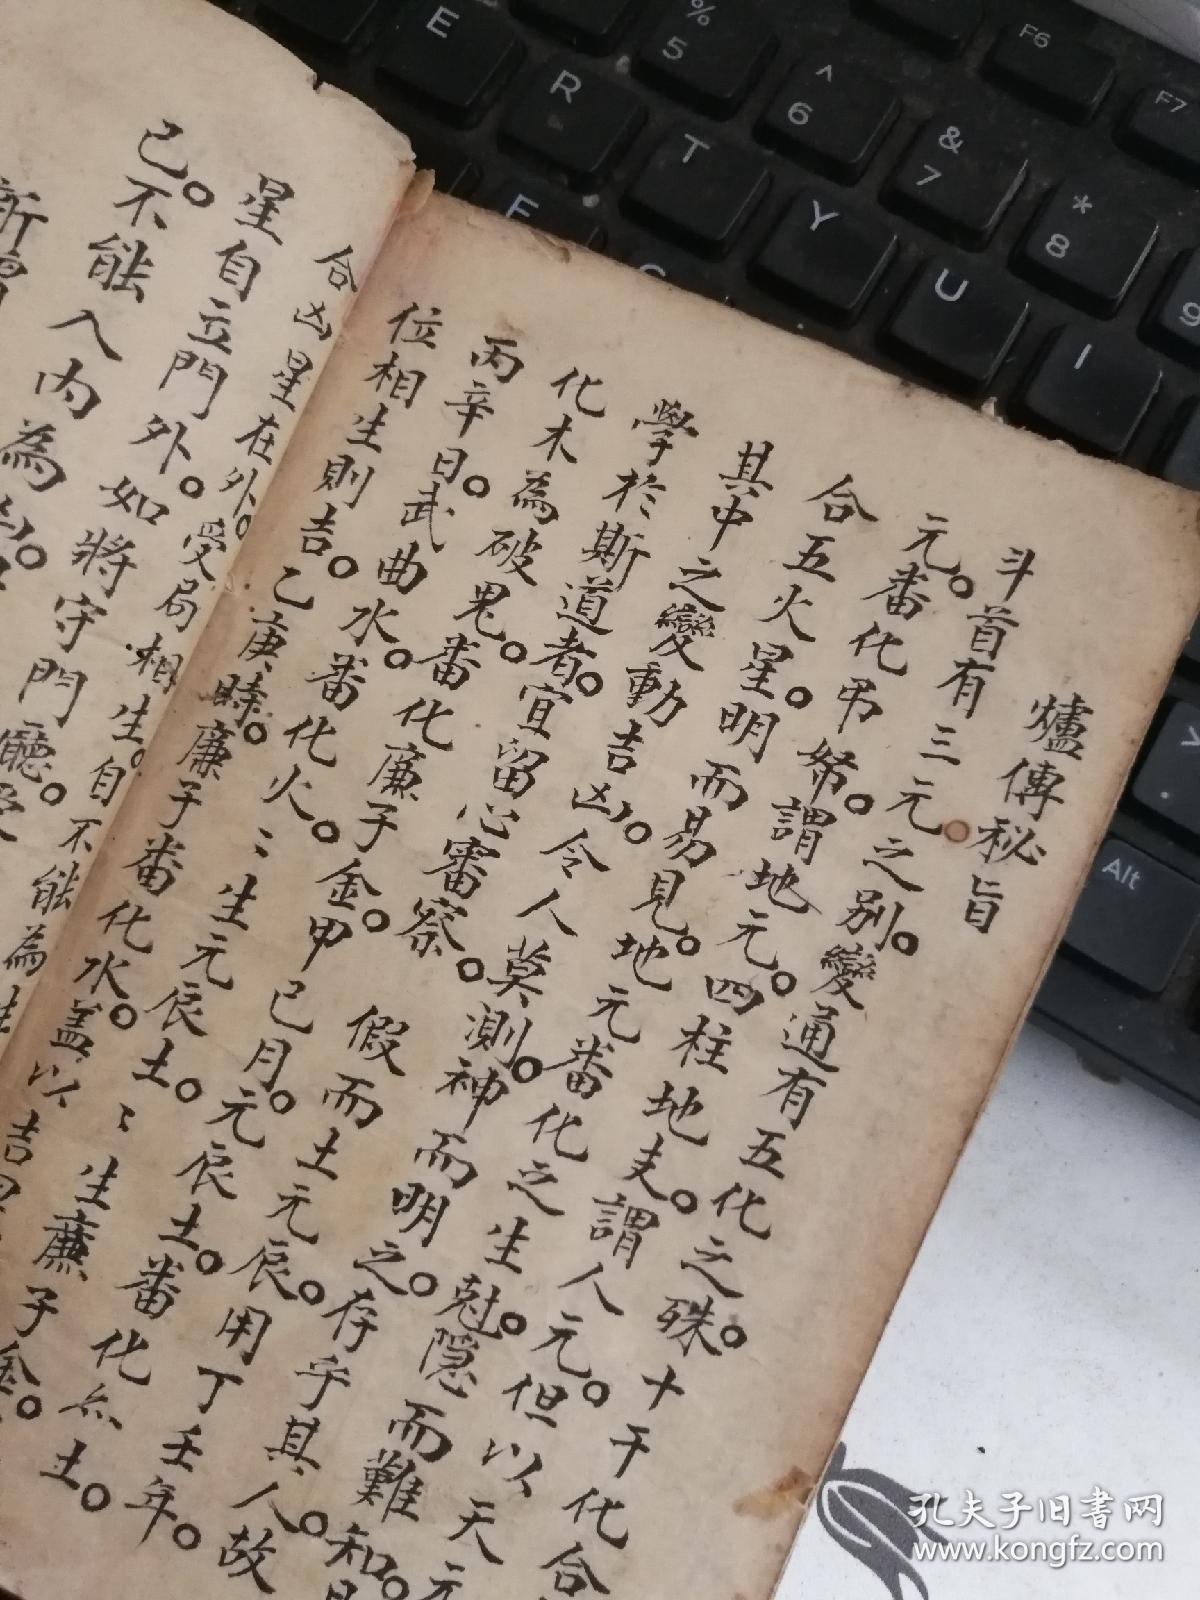 爐傳秘旨
斗首有三元。變通有五化之殊。十干化合
元。番化弔帑。謂地元。四柱地支。謂人元。但以天元
合五火星。明而易見。地元番化之生尅。隱而難知。
其中之變動吉凶。令人莫測。神而明之。存乎其人。故
學於斯道者。宜留心審察。假而土元辰。用丁壬年。
化木為破鬼。番化廉子金。甲己月。元辰土。番化
丙辛日。武曲水。番化火。火生元辰土。土生廉子金。
位相生則吉。乙庚時。廉子番化水。蓋以吉
合凶星在外。受局相生。自不能為
星自立門外。如將守門廳。
己。不能入內為凶。
E
R
T
Y
U
I
F
% 5
^ 6
& 7
* 8
9
F6
F7
Alt
孔夫子旧书网
www.kongfz.com